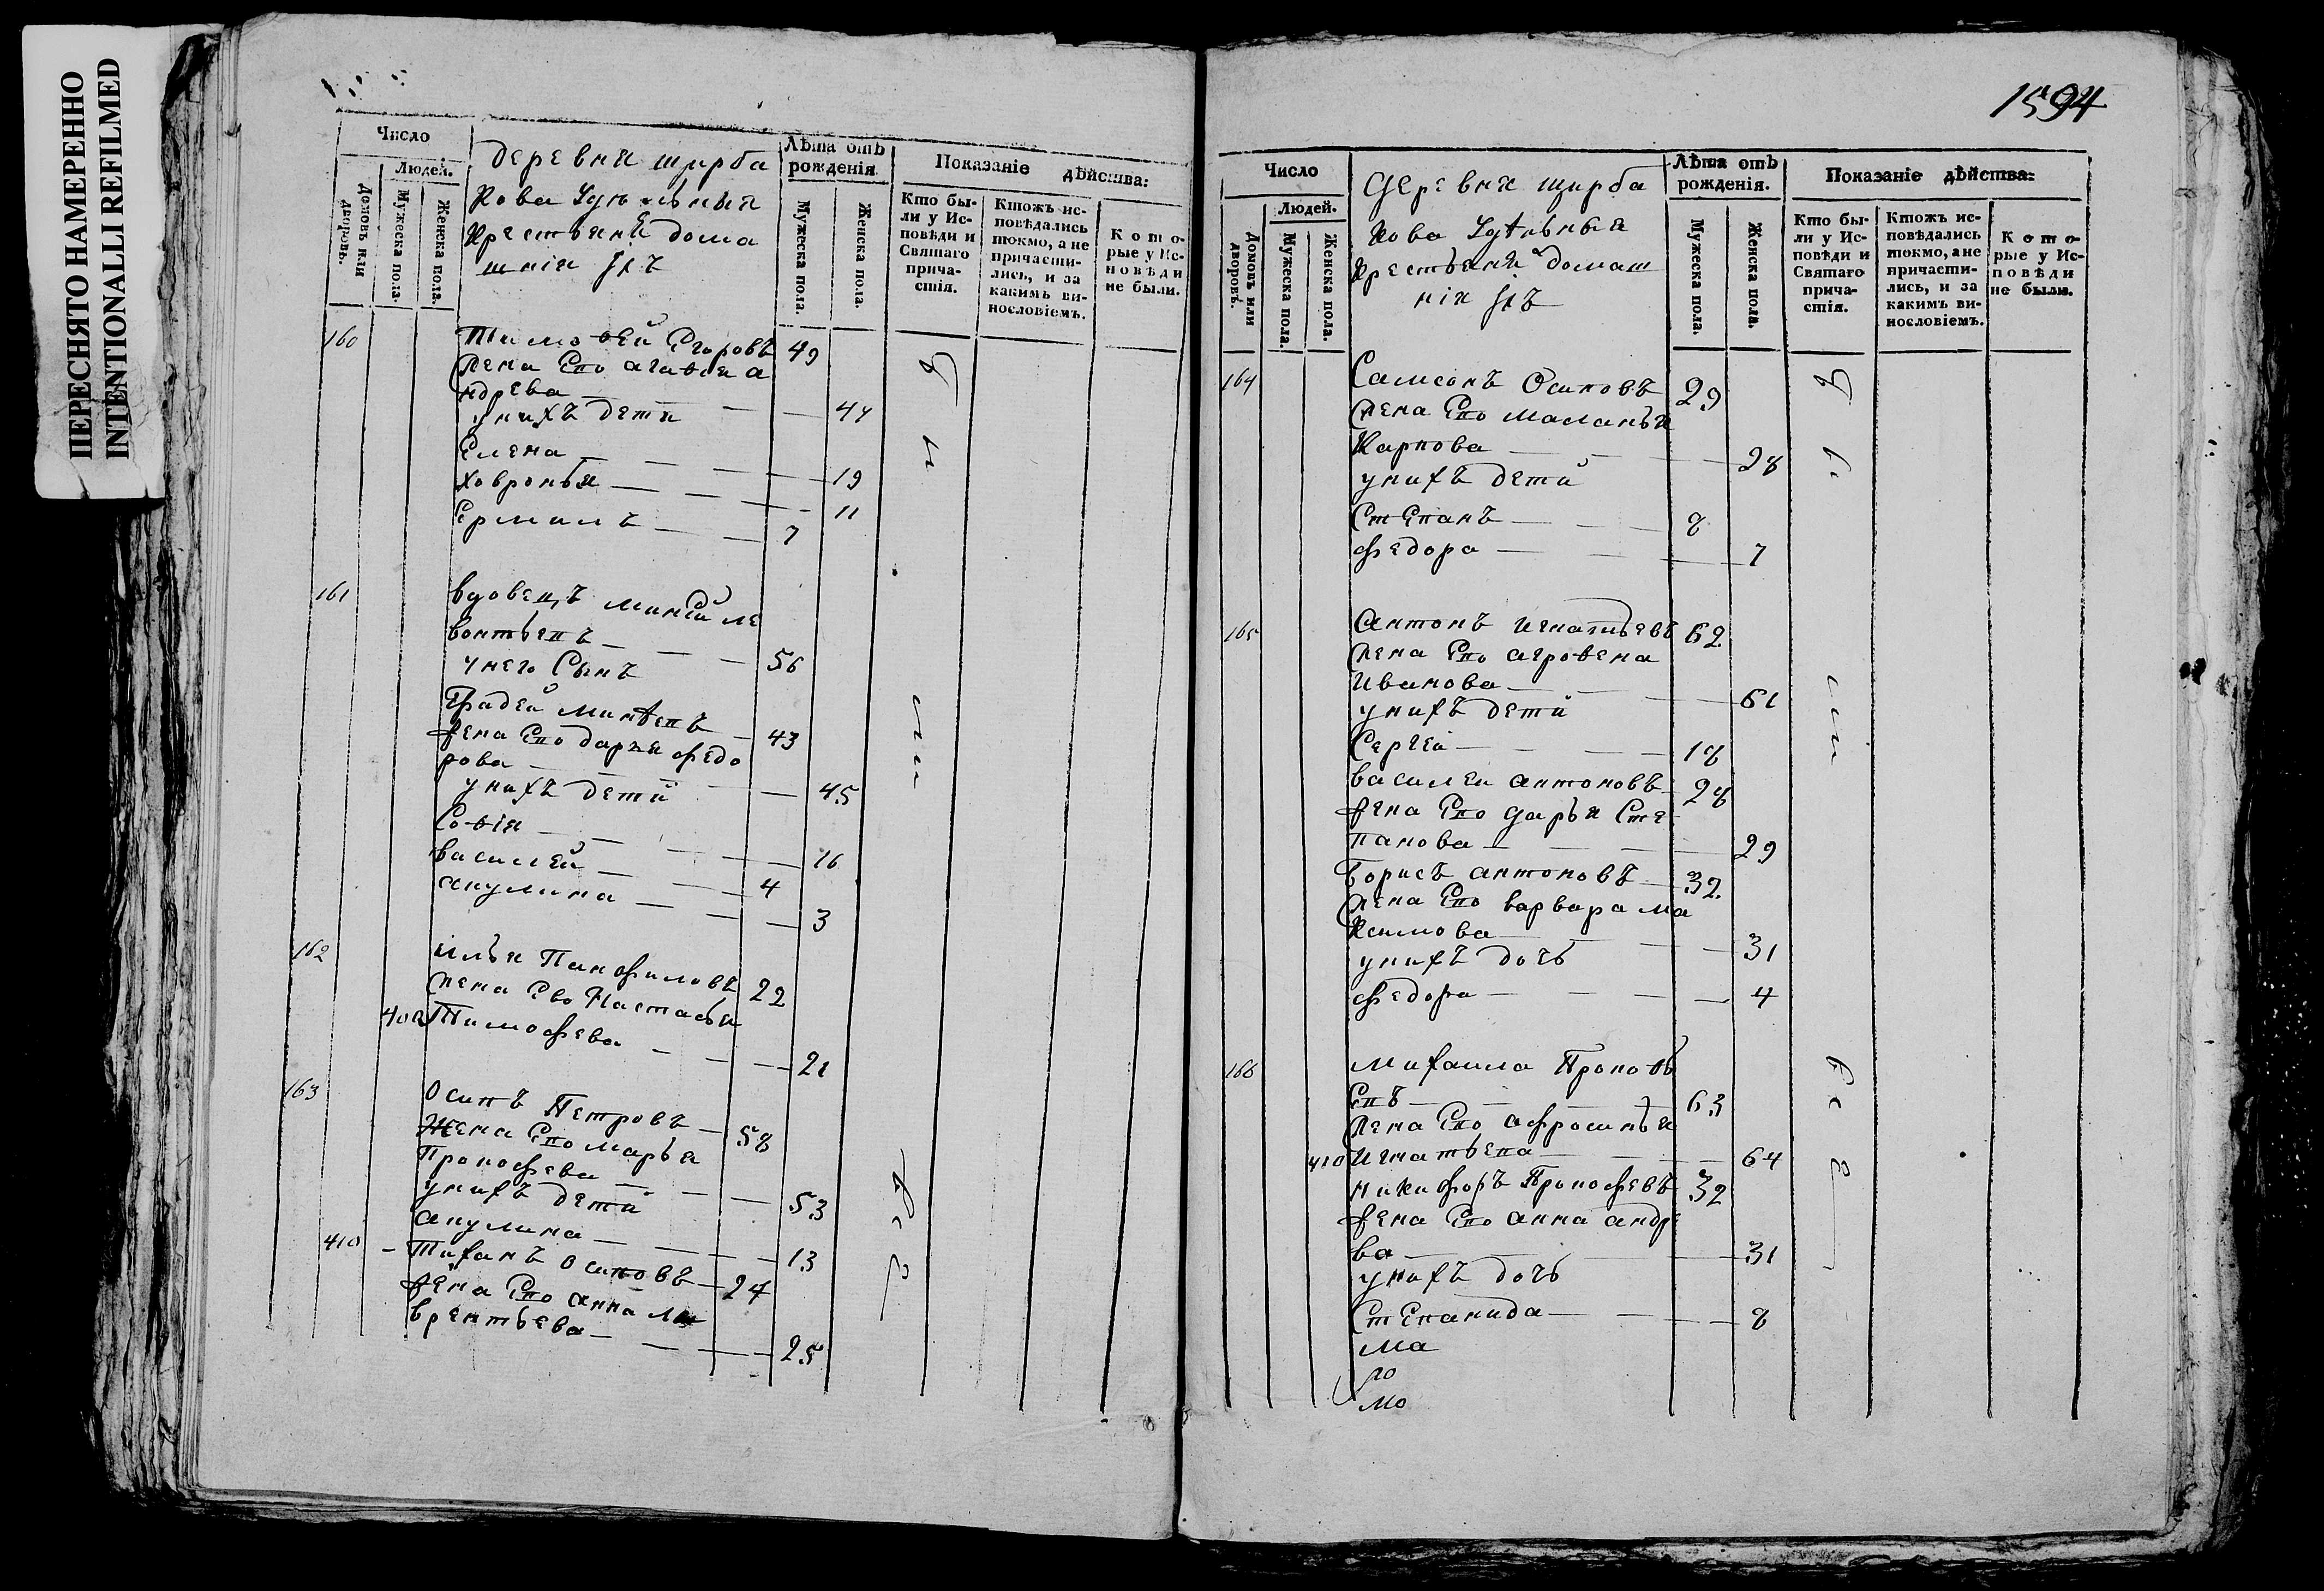 ПЕРЕСНЯТО НАМЕРЕННО
INTENTIONALLI REFILMED
Число
Людей.
Домовъ или дворовъ.
Мужеска пола.
Женска пола.
деревни щирба
кова
крестьяня дома
шнія ихъ
Лѣта отъ
рожденія
Мужеска пола.
Женска пола.
Показаніе дѣйства:
Кто бы-
ли у Ис-
повѣди и
Святаго
прича-
стія.
Ктожъ ис-
повѣдались
токмо, а не
причасти-
лись, и за
какимъ ви-
нословіемъ.
Кото-
рые у Ис-
повѣди
не были.
160
Тимофей Егоровъ 49
жена Ево агафия а
ндрева 44
унихъ дети
Елена 19
Ховронья 11
Ермилъ 7
161
вдовецъ миней ле
вонтьевъ 56
унего Сынъ
Фадей минѣевъ 43
жена Ево дарья федо
рова 45
унихъ дети
Софія 16
василей 4
акулина 3
162
илья Панфиловъ 22
жена Ево Настасья
Тимофева 21
163
Осипъ Петровъ 58
Жена Ево марья
Прокофева 53
унихъ дети
акулина 13
410
Тиханъ осиповъ 24
жена Ево анна ла
врентьева 25
1594
Число
Людей.
Домовъ или дворовъ.
Мужеска пола.
Женска пола.
деревни щирба
кова Удѣльныя
крестьяня домаш
нія ихъ
Лѣта отъ
рожденія.
Мужеска пола.
Женска пола.
Показаніе дѣйства:
Кто бы-
ли у Ис-
повѣди и
Святаго
прича-
стія.
Ктожъ ис-
повѣдались
токмо, а не
причасти-
лись, и за
какимъ ви-
нословіемъ.
Кото-
рые у Ис-
повѣди
не были.
164
Самсонъ Осиповъ 29
жена Ево маланья
Карпова 28
унихъ дети
Степанъ 8
федора 7
165
антонъ игнатьевъ 62
жена Ево агрофена
Иванова 61
унихъ дети
Сергей 18
василей антоновъ 28
жена Ево дарья Сте
панова 29
Борисъ антоновъ 32
жена Ево варвара ма
ксимова 31
унихъ дочь
федора 4
166
михаила Прокофь
Евъ 63
жена Ево афросинья
410 игнатьева 64
никифоръ Прокофевъ 32
жена Ево анна андре
ва 31
унихъ дочь
Степанида 8
ма
ло
мо